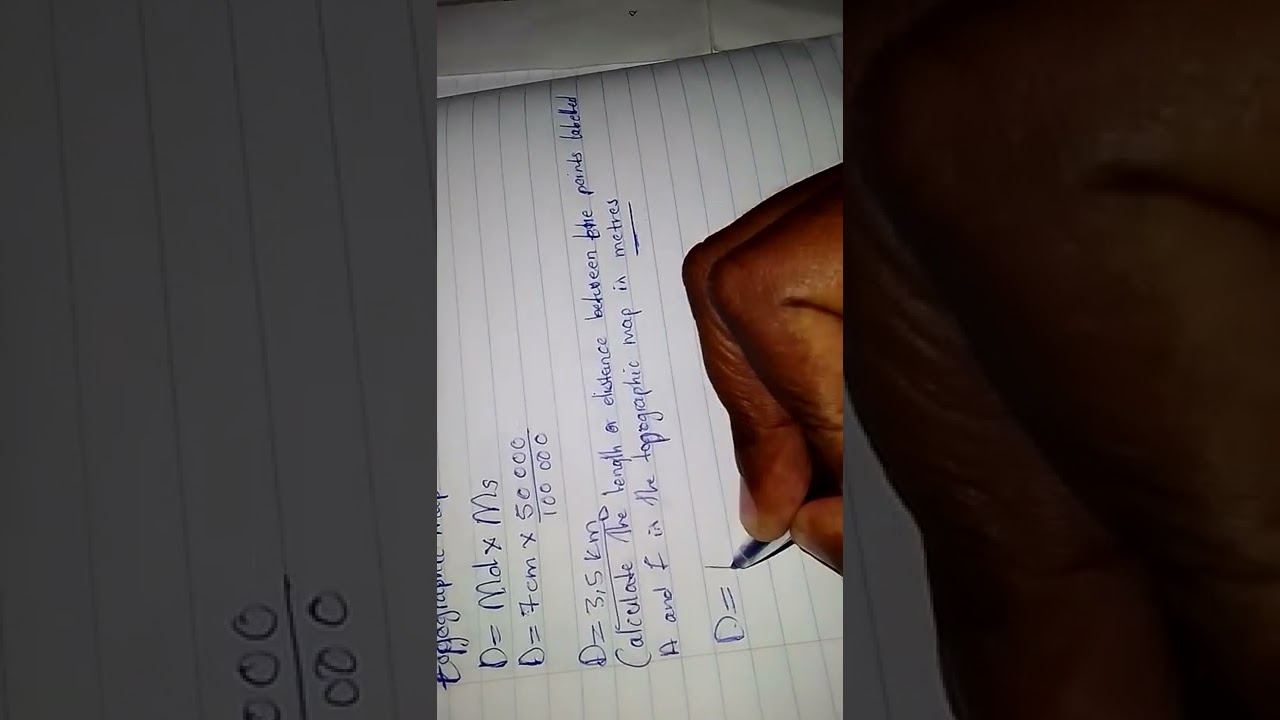 topographic map
D = Md x Ms
D = 7cm x 50 000
100 000
D = 3,5 km
Calculate The length or distance between the points labelled
A and F in the topographic map in metres
D =